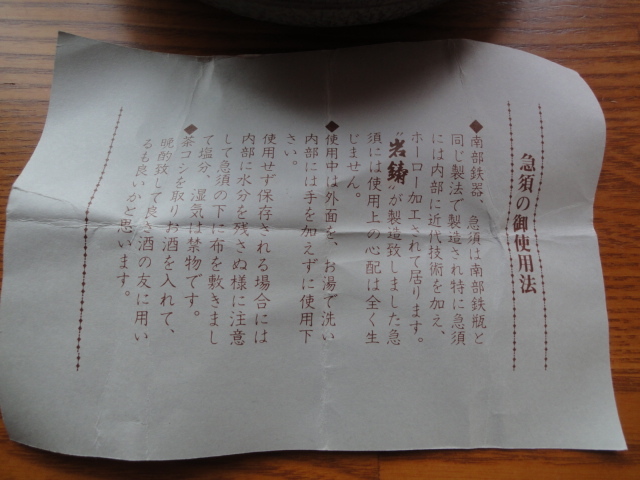 急須の御使用法
◆南部鉄器、急須は南部鉄瓶と
同じ製法で製造され特に急須
には内部に近代技術を加え、
ホーロー加工されて居ります。
〝岩鋳〟が製造致しました急
須には使用上の心配は全く生
じません。
◆使用中は外面を、お湯で洗い
内部には手を加えずに使用下
さい。
使用せず保存される場合には
内部に水分を残さぬ様に注意
して急須の下に布を敷きまし
て塩分、湿気は禁物です。
◆茶コシを取りお酒を入れて、
晩酌致して良き酒の友に用い
るも良いかと思います。